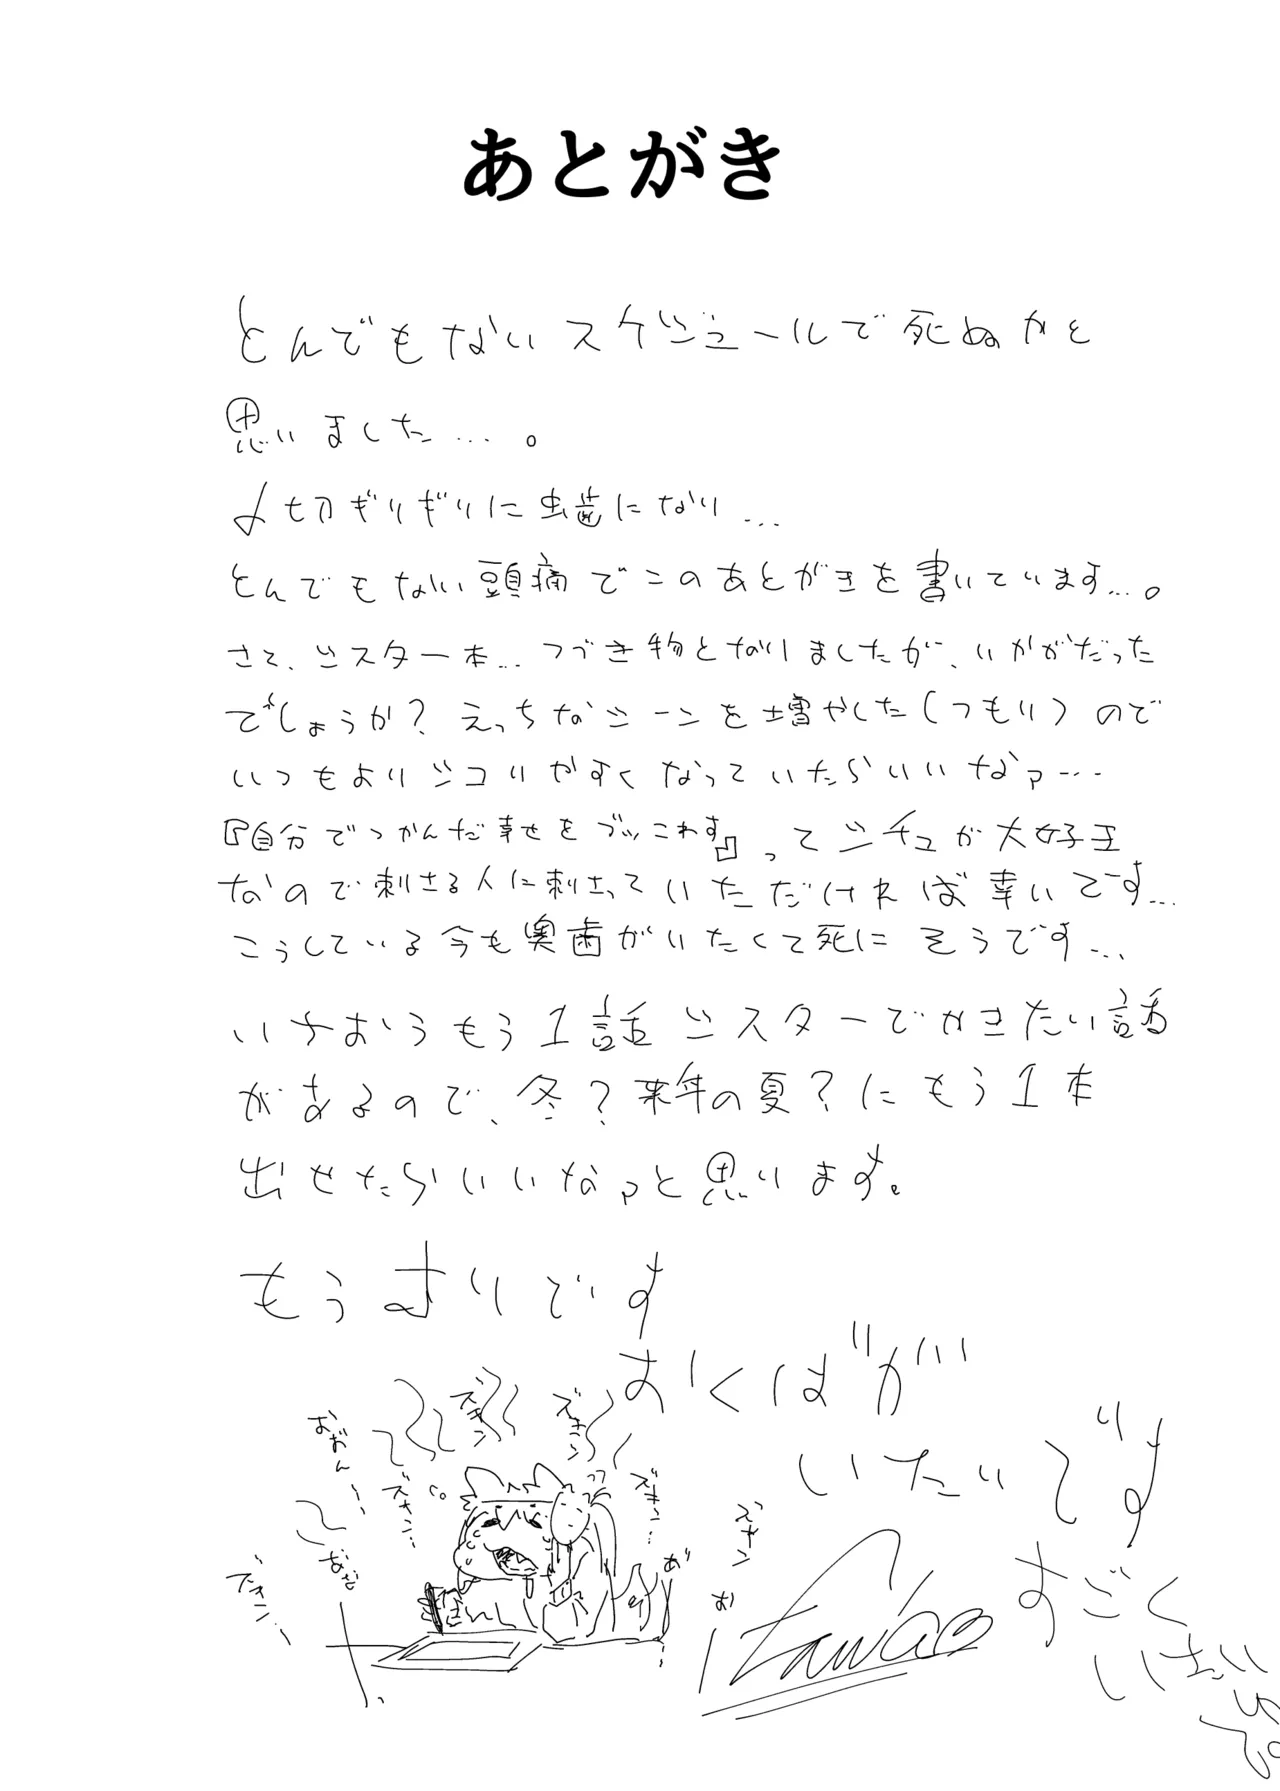 あとがき
とんでもないスケジュールで死ぬかと
思いました…。
〆切ギリギリに虫歯になり…
とんでもない頭痛でこのあとがきを書いています…。
さて、シスター本…つづき物となりましたが、いかがだった
でしょうか？えっちなシーンを増やした(つもり)ので
いつもよりシコりやすくなっていたらいいなァ…
『自分でつかんだ幸せをブッこわす』ってシチュが大好き
なので刺さる人に刺さっていただければ幸いです…
こうしている今も奥歯がいたくて死にそうです…
いちおうもう1話シスターでかきたい話
があるので、冬？来年の夏？にもう1本
出せたらいいなァと思います。
もうまりです
おくばが
いたいです
すごく
いたい
ズキン
ズキン
ズキン…
ズキン…
ズキン
ズキン…
おおん…